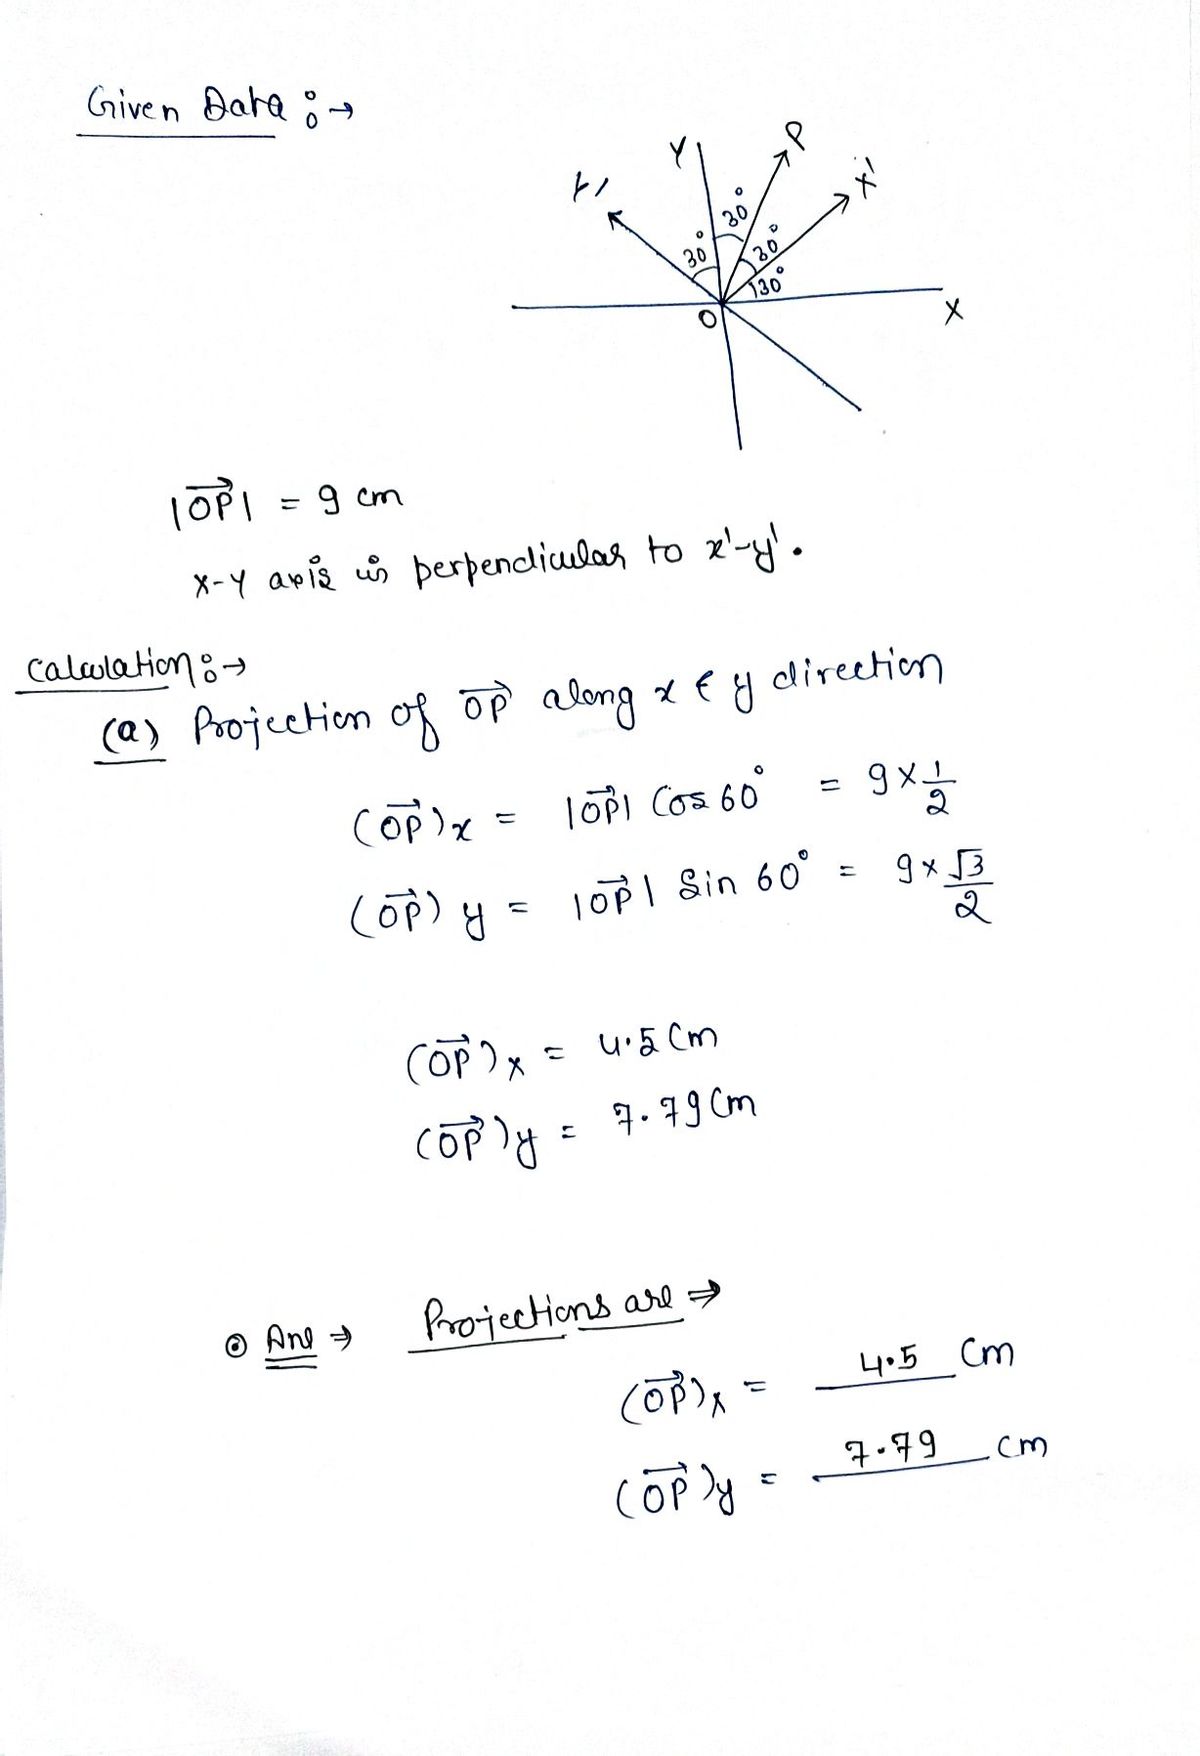 Given Data :→
Y
P
Y'
X'
30°
30°
30°
30°
O
X
|OP⃗| = 9 cm
X-Y axis is perpendicular to x'-y'.
Calculation :→
(a) Projection of OP⃗ along x & y direction
(OP⃗)x = |OP⃗| Cos 60° = 9 × 1/2
(OP⃗)y = |OP⃗| Sin 60° = 9 × √3/2
(OP⃗)x = 4.5 Cm
(OP⃗)y = 7.79 Cm
⊙ Ans ⇒ Projections are ⇒
(OP⃗)x = 4.5 Cm
(OP⃗)y = 7.79 cm